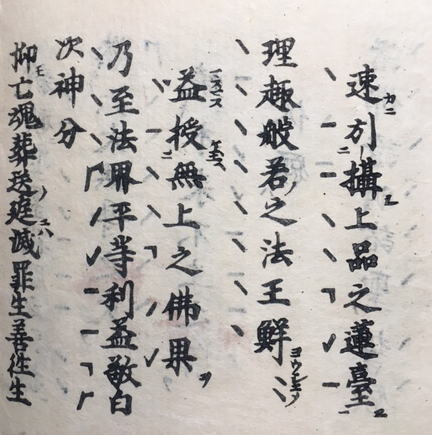 速カニ引攝上品之蓮臺
理趣般若ノ之法王鮮
益授無上之佛果ヲ
乃至法界平等利益敬白
次神分
抑モ亡魂葬送ノ庭ニハ滅罪生善往生